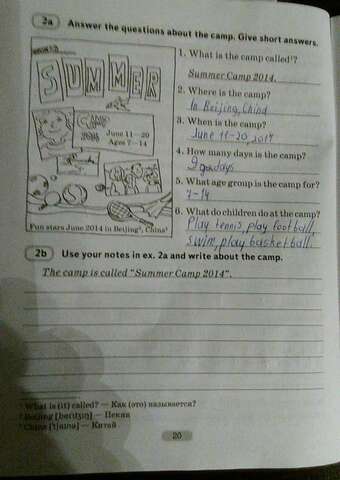 2a Answer the questions about the camp. Give short answers.
SUMMER
CAMP
2014
June 11—20
Ages 7—14
Fun stars June 2014 in Beijing², China³
1. What is the camp called¹?
Summer Camp 2014.
2. Where is the camp?
In Beijing, China
3. When is the camp?
June 11-20, 2014
4. How many days is the camp?
9 days
5. What age group is the camp for?
7-14
6. What do children do at the camp?
Play tennis, play football,
swim, play basketball.
2b Use your notes in ex. 2a and write about the camp.
The camp is called "Summer Camp 2014".
¹ What is (it) called? — Как (это) называется?
² Beijing [beɪˈdʒɪŋ] — Пекин
³ China [ˈtʃaɪnə] — Китай
20